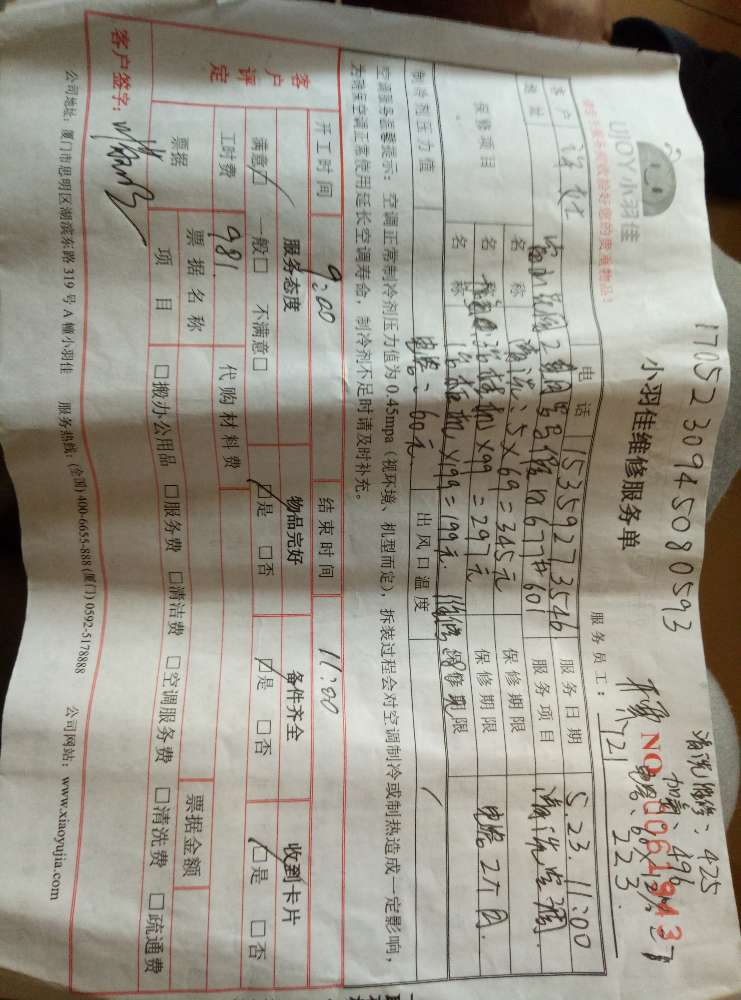 1705230945080593
UJOY小羽佳
请您注意并收检好您的贵重物品!
小羽佳维修服务单
服务员工:
121
清洗维修:425
加氟:496
223
客户
电话
15359273546
服务日期
5.23. 11:00
地址
服务项目
清洗空调
保修项目
名称
清洗:5×69=345元
保修期限
名称
挂机×99=297元
保修期限
名称
柜机×199=199元
保修期限
电容:60元
制冷剂压力值
出风口温度
空调服务温馨提示:空调正常制冷剂压力值为0.45mpa(视环境、机型而定),拆装过程会对空调制冷或制热造成一定影响,
为确保空调正常使用延长空调寿命,制冷剂不足时请及时补充。
开工时间
9:00
结束时间
11:00
客户评定
服务态度
物品完好
备件齐全
收到卡片
满意□ 一般□ 不满意□
□是 □否
□是 □否
□是 □否
工时费
981
代购材料费
票据
票据名称
票据金额
项目
□搬办公用品 □服务费 □清洁费 □空调服务费 □清洗费 □疏通费
客户签字:
公司地址:厦门市思明区湖滨东路319号A幢小羽佳 服务热线:(全国)400-6655-888 (厦门)0592-5178888 公司网站:www.xiaoyujia.com